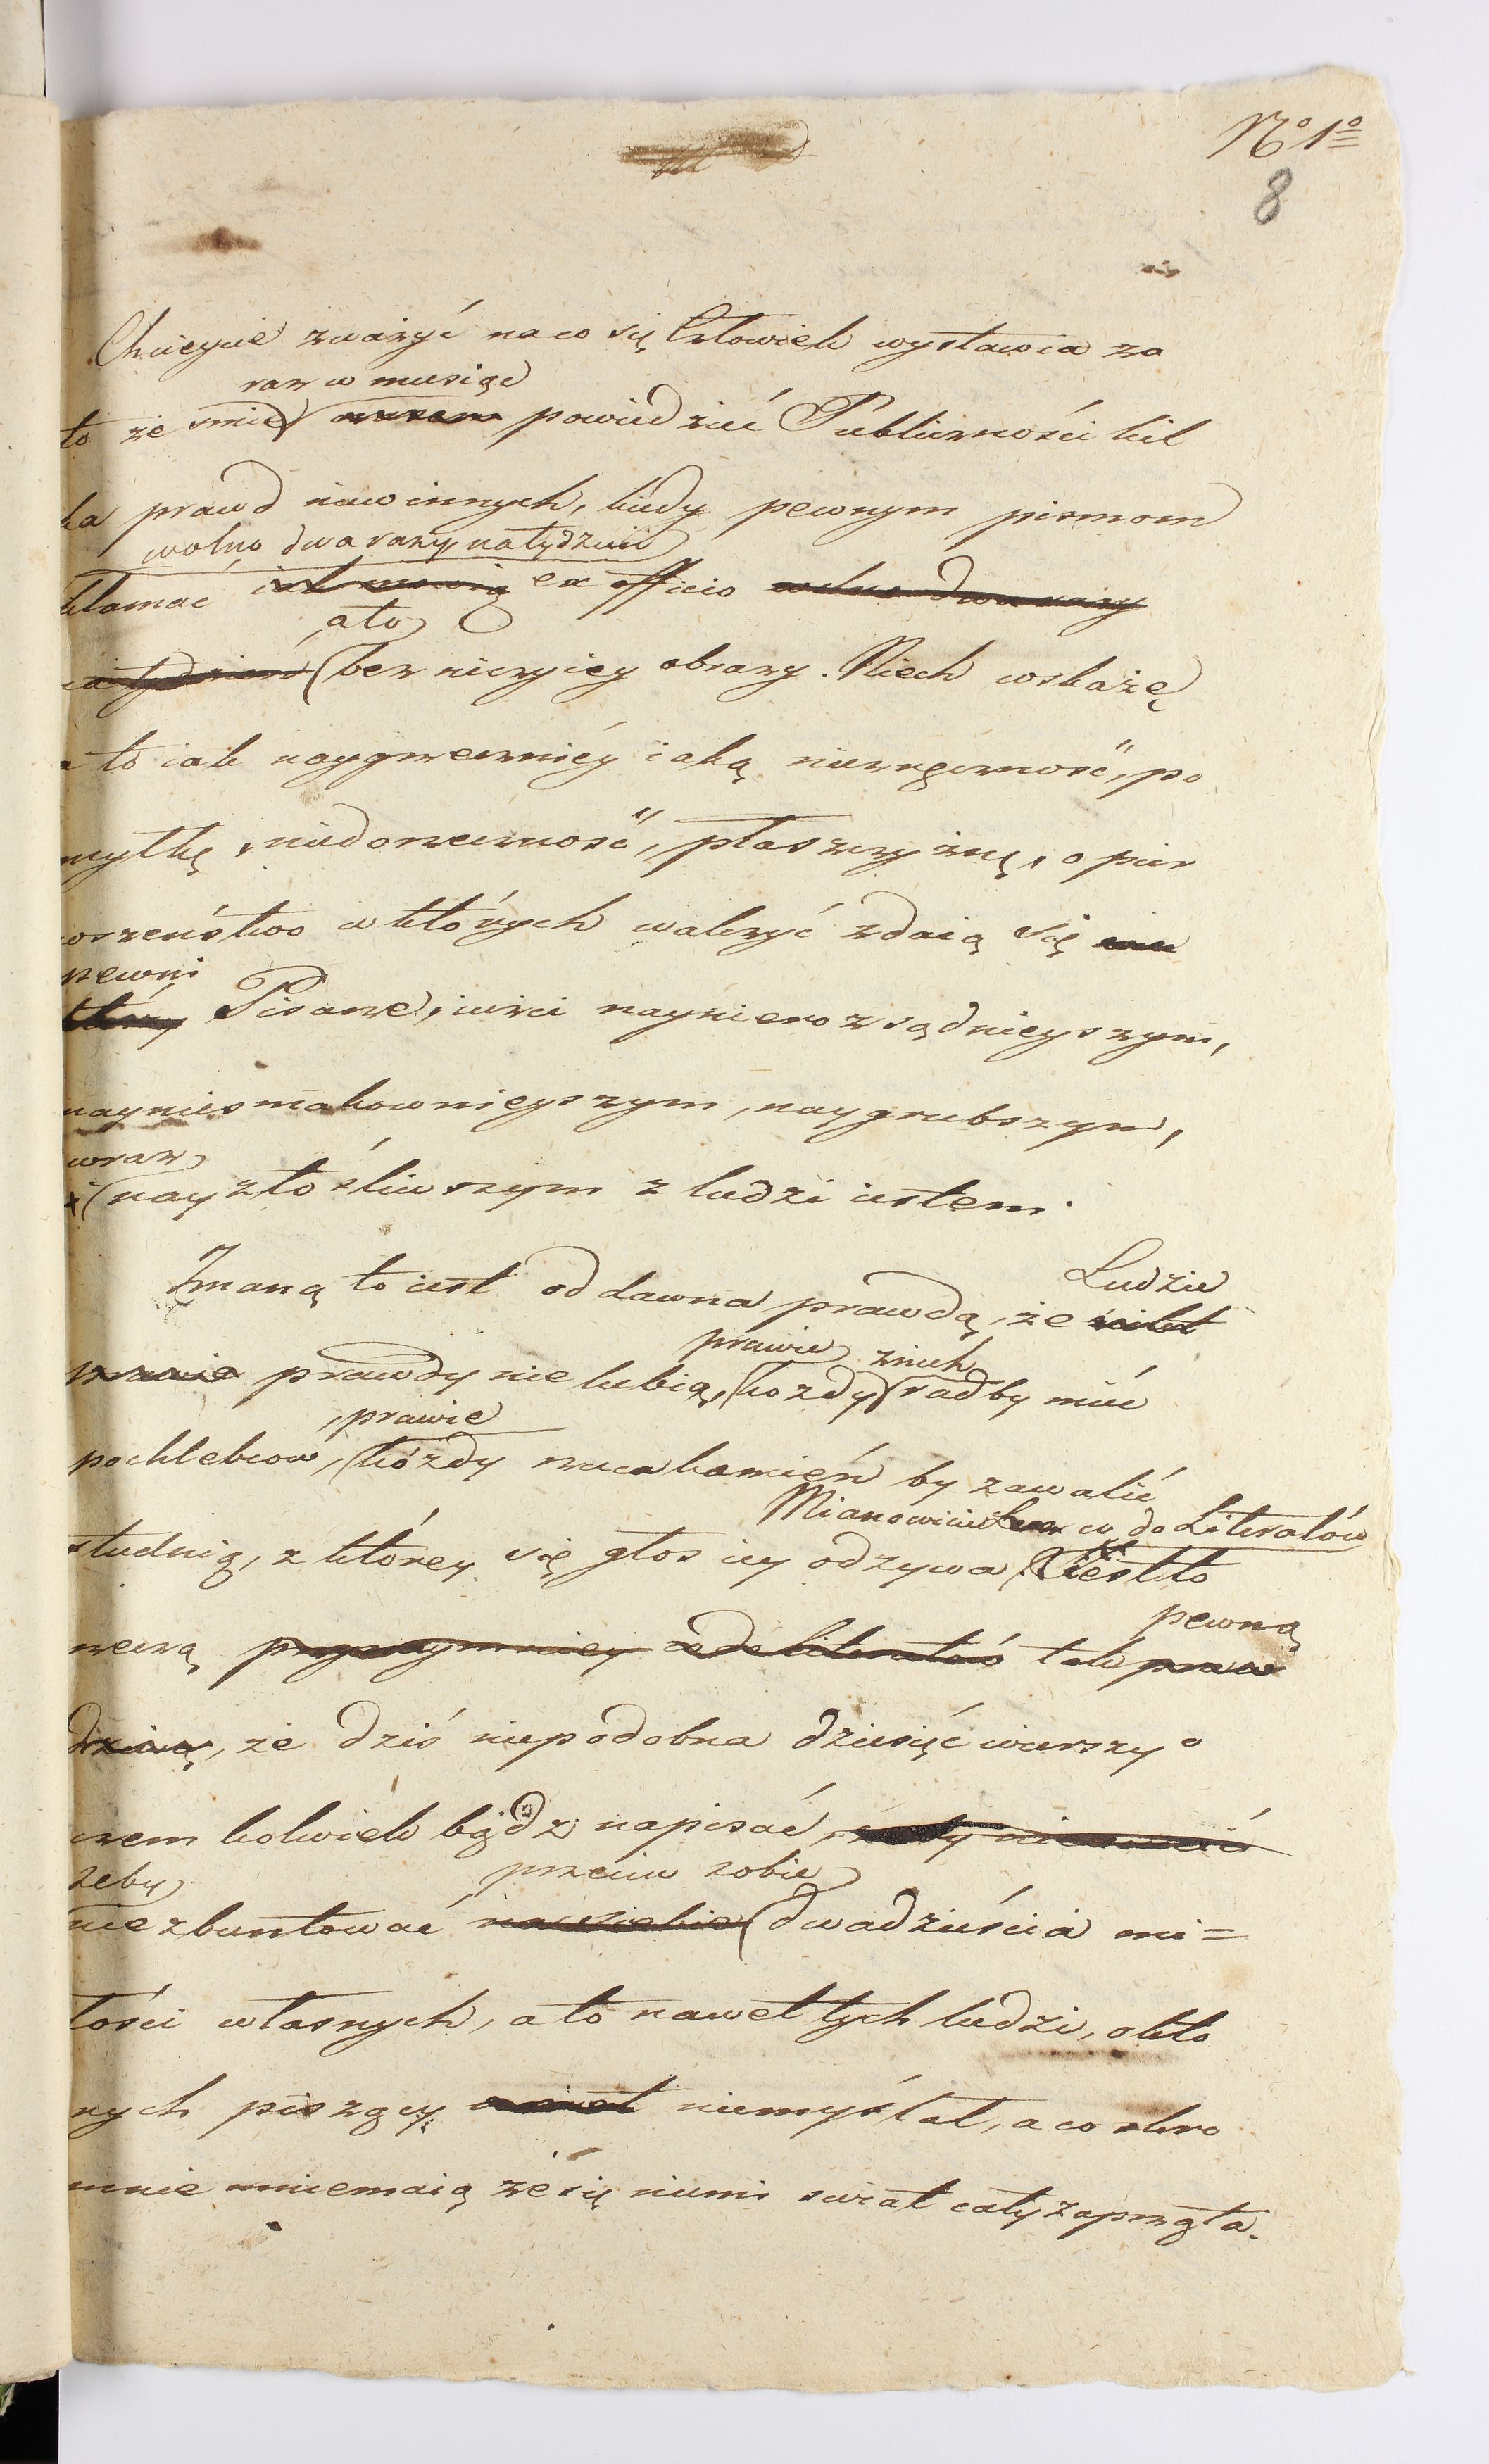 No 1o
8
Chcieycie zważyć na co się Człowiek wystawia za
raz w miesiąc
to że śmie powiedzieć Publiczności kil
ka prawd niewinnych, kiedy pewnym pismom
wolno dwa razy na tydzień
kłamać iak mowią ex officio wolno dwa razy
a to
na tydzień bez niczyiey obrazy. Niech wskażę
a to iak naygrzeczniéy iaką niezręczność, po
myłkę, niedorzeczność, płaszczyznę, o pier
wszeństwo w których walczyć zdaią się
pewni
którzy Pisarze, iużci naynierozsądnieyszym,
nayniesmakownieyszym, naygrubszym,
wraz
i nayzłośliwszym z ludzi iestem.
Znaną to iest od dawna prawdą, że
Ludzie
prawie z nich
prawdy nie lubią, każdy radby mieć
prawie
pochlebcow, kázdy rzuca kamień by zawalić
Mianowicie co do Literatów
studnią, z którey się głos iey odzywa. Jest to
pewną
rzeczą przynaymniey co do literatów tak praw
dziwą, że dziś niepodobna dziesięć wierszy o
czem kolwiek bądź napisać,
żeby przeciw sobie
niezbuntować na siebie dwadzieścia mi=
łości własnych, a to nawet tych ludzi, o któ
rych piszący niemyślał, a co skro
mnie mniemaią że się niemi swiat cały zaprząta.